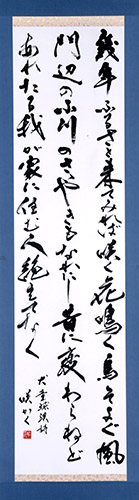 幾年ふるさと来てみれば咲く花鳴く鳥そよぐ風
門辺の小川のささやきもなれにし昔に変わらねど
あれたる我が家に住む人絶えてなく
犬童球渓詩